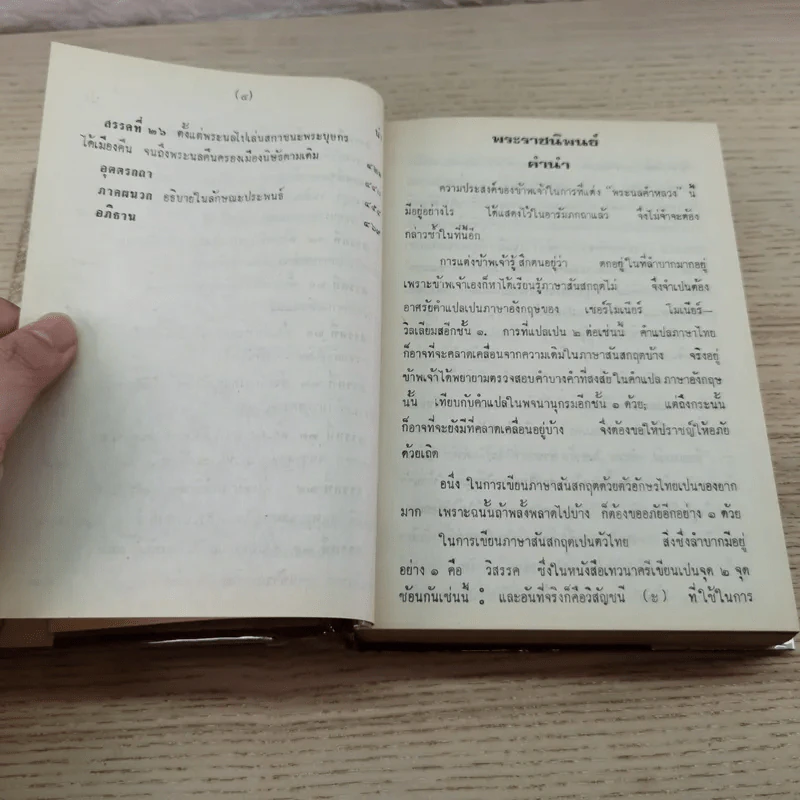 (๘)
สรรคที่ ๒๖ ตั้งแต่พระนลไปเล่นสกาชนะพระบุษกร
ได้เมืองคืน จนถึงพระนลคืนครองเมืองนิษัธตามเดิม
อุตตรกถา
ภาคผนวก อธิบายในลักษณะประพนธ์
อภิธาน
พระราชนิพนธ์
คำนำ
ความประสงค์ของข้าพเจ้าในการที่แต่ง "พระนลคำหลวง" นี้
มีอยู่อย่างไร ได้แสดงไว้ในอารัมภกถาแล้ว จึงไม่จำจะต้อง
กล่าวซ้ำในที่นี้อีก
การแต่งข้าพเจ้ารู้สึกตนอยู่ว่า ตกอยู่ในที่ลำบากมากอยู่
เพราะข้าพเจ้าเองก็หาได้เรียนรู้ภาษาสันสกฤตไม่ จึงจำเปนต้อง
อาศรัยคำแปลเปนภาษาอังกฤษของ เซอร์โมเนียร์ โมเนียร์—
วิลเลียมสอีกชั้น ๑. การที่แปลเปน ๒ ต่อเช่นนี้ คำแปลภาษาไทย
ก็อาจที่จะคลาดเคลื่อนจากความเดิมในภาษาสันสกฤตบ้าง จริงอยู่
ข้าพเจ้าได้พยายามตรวจสอบคำบางคำที่สงสัยในคำแปลภาษาอังกฤษ
นั้น เทียบกับคำแปลในพจนานุกรมอีกชั้น ๑ ด้วย; แต่ถึงกระนั้น
ก็อาจที่จะยังมีที่คลาดเคลื่อนอยู่บ้าง จึงต้องขอให้ปราชญ์ให้อภัย
ด้วยเถิด
อนึ่ง ในการเขียนภาษาสันสกฤตด้วยตัวอักษรไทยเปนของยาก
มาก เพราะฉนั้นถ้าพลั้งพลาดไปบ้าง ก็ต้องขออภัยอีกอย่าง ๑ ด้วย
ในการเขียนภาษาสันสกฤตเปนตัวไทย สิ่งซึ่งลำบากมีอยู่
อย่าง ๑ คือ วิสรรค ซึ่งในหนังสือเทวนาครีเขียนเปนจุด ๒ จุด
ซ้อนกันเช่นนี้ ః และอันที่จริงก็คือวิสัญชนี (ะ) ที่ใช้ในการ